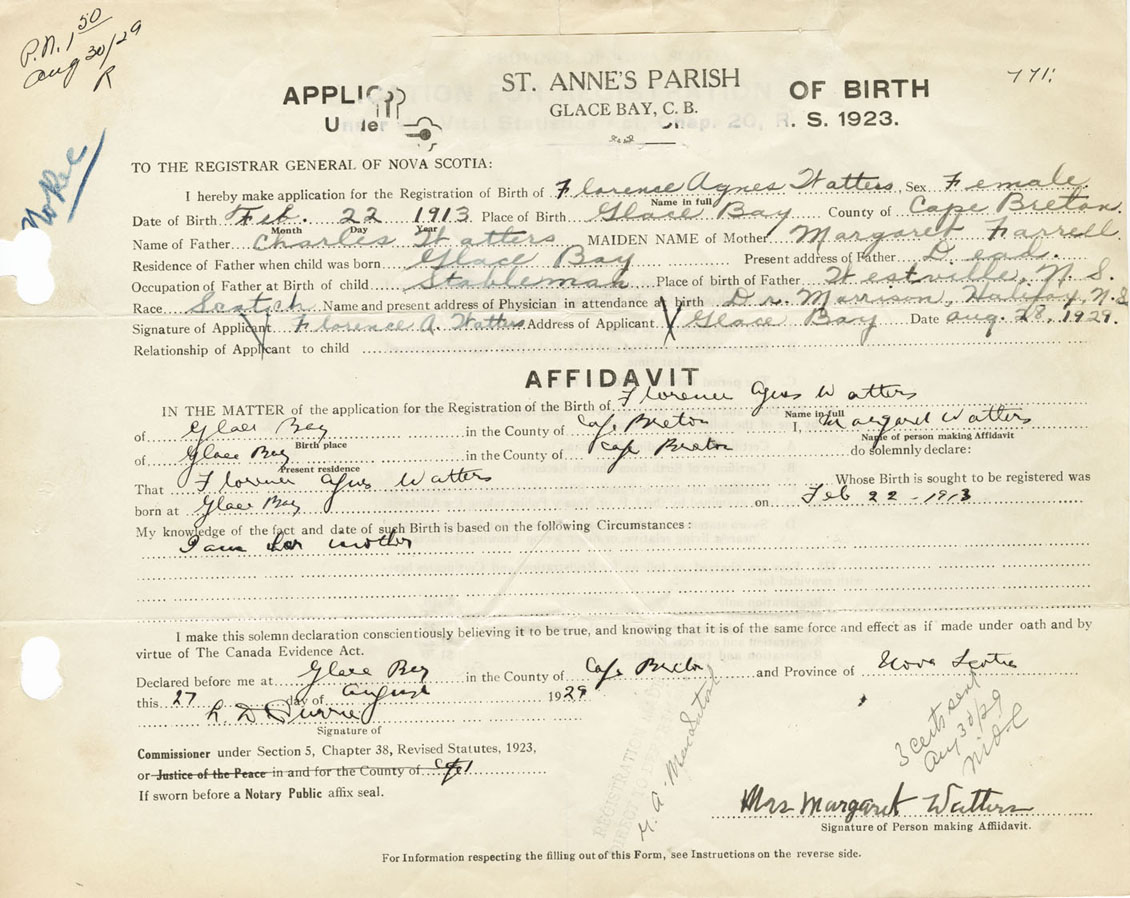 P.N. 1 50
Aug 30/29
R
No Rec
APPLIC
Under
ST. ANNE'S PARISH
GLACE BAY, C. B.
OF BIRTH
R. S. 1923.
TO THE REGISTRAR GENERAL OF NOVA SCOTIA:
I hereby make application for the Registration of Birth of Florence Agnes Watters, Sex Female
Name in full
Date of Birth Feb. 22 1913 Place of Birth Glace Bay County of Cape Breton.
Month Day Year
Name of Father Charles Watters MAIDEN NAME of Mother Margaret Farrell
Residence of Father when child was born Glace Bay Present address of Father Dead.
Occupation of Father at Birth of child Stableman Place of birth of Father Westville, N. S.
Race Scotch Name and present address of Physician in attendance at birth Dr. Morrison, Halifax, N.S
Signature of Applicant Florence A. Watters Address of Applicant X Glace Bay Date Aug. 28, 1929.
Relationship of Applicant to child
AFFIDAVIT
IN THE MATTER of the application for the Registration of the Birth of Florence Agnes Watters
Name in full
of Glace Bay in the County of Cape Breton I, Margaret Watters
Birth place Name of person making Affidavit
of Glace Bay in the County of Cape Breton do solemnly declare:
Present residence
That Florence Agnes Watters Whose Birth is sought to be registered was
born at Glace Bay on Feb 22 - 1913
My knowledge of the fact and date of such Birth is based on the following Circumstances:
I am her mother
I make this solemn declaration conscientiously believing it to be true, and knowing that it is of the same force and effect as if made under oath and by
virtue of The Canada Evidence Act.
Declared before me at Glace Bay in the County of Cape Breton and Province of Nova Scotia
this 27 day of August 1929
L. D. Currie
Signature of
Commissioner under Section 5, Chapter 38, Revised Statutes, 1923,
or Justice of the Peace in and for the County of
If sworn before a Notary Public affix seal.
M. A. MacIntosh
3 certs sent
Aug 30/29
Mrs Margaret Watters
Signature of Person making Affidavit.
For Information respecting the filling out of this Form, see Instructions on the reverse side.